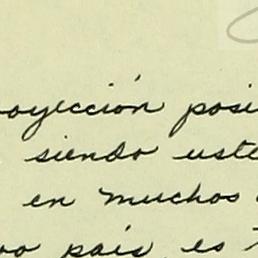 oyección posi
siendo uste
en muchos
país, es